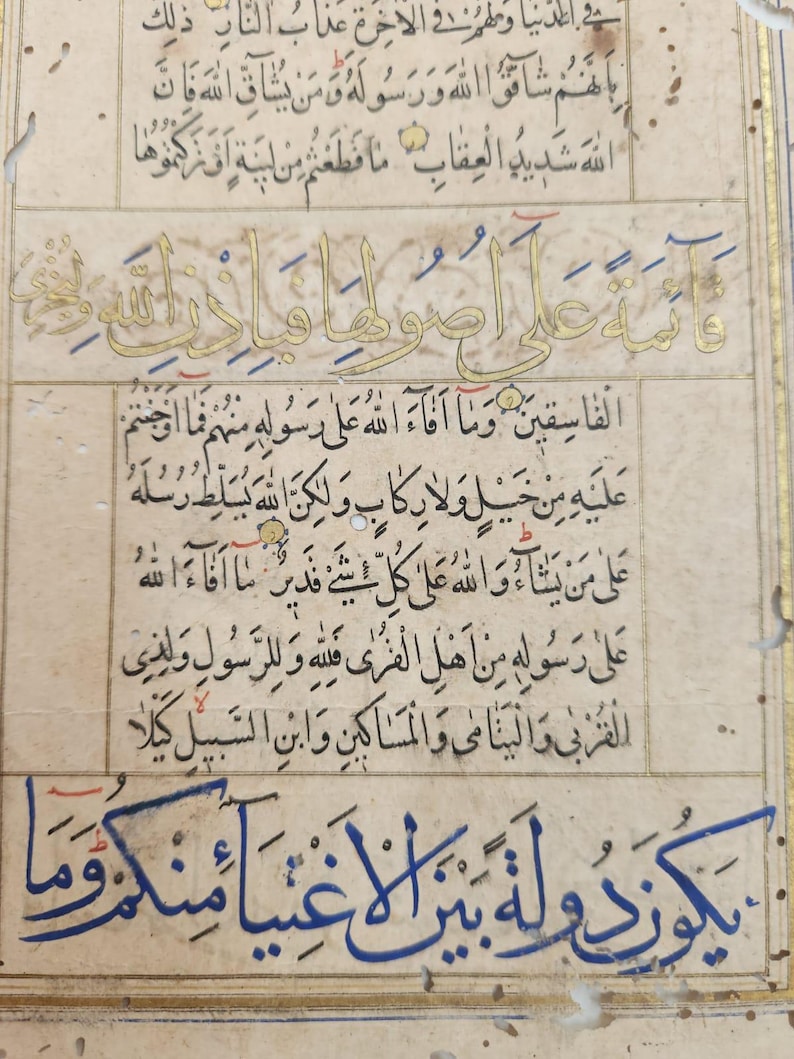 فِي الدُّنْيَا وَلَهُمْ فِي الْآخِرَةِ عَذَابُ النَّارِ ذٰلِكَ
بِاَنَّهُمْ شَاقُّوا اللهَ وَرَسُولَهُ وَمَنْ يُشَاقِّ اللهَ فَاِنَّ
اللهَ شَدِيدُ الْعِقَابِ مَا قَطَعْتُمْ مِنْ لِينَةٍ اَوْ تَرَكْتُمُوهَا
قَآئِمَةً عَلَىٰٓ اُصُولِهَا فَبِاِذْنِ اللهِ وَلِيُخْزِيَ
الْفَاسِقِينَ وَمَآ اَفَآءَ اللهُ عَلَىٰ رَسُولِهِ مِنْهُمْ فَمَآ اَوْجَفْتُمْ
عَلَيْهِ مِنْ خَيْلٍ وَلَا رِكَابٍ وَلٰكِنَّ اللهَ يُسَلِّطُ رُسُلَهُ
عَلَىٰ مَنْ يَشَآءُ وَاللهُ عَلَىٰ كُلِّ شَيْءٍ قَدِيرٌ مَآ اَفَآءَ اللهُ
عَلَىٰ رَسُولِهِ مِنْ اَهْلِ الْقُرَىٰ فَلِلّٰهِ وَلِلرَّسُولِ وَلِذِي
الْقُرْبَىٰ وَالْيَتَامَىٰ وَالْمَسَاكِينِ وَابْنِ السَّبِيلِ كَيْلَا
يَكُونَ دُولَةً بَيْنَ الْاَغْنِيَآءِ مِنْكُمْ وَمَآ